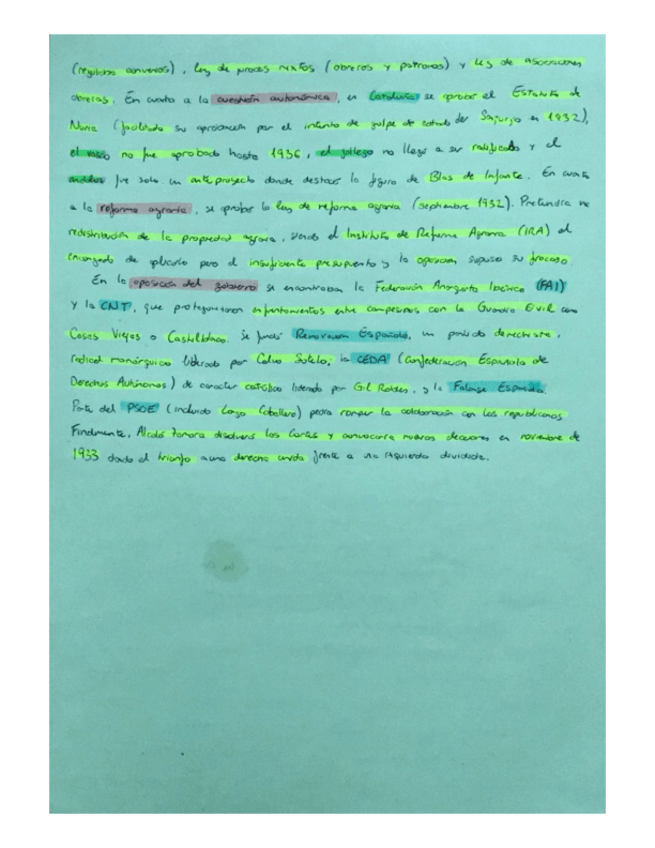 (regulaba convenios), ley de jurados mixtos (obreros y patronos) y ley de asociaciones
obreras. En cuanto a la cuestión autonómica, en Cataluña se aprobó el Estatuto de
Nuria (facilitado su aprobación por el intento de golpe de estado de Sanjurjo en 1932),
el vasco no fue aprobado hasta 1936, el gallego no llegó a ser ratificado y el
andaluz fue solo un anteproyecto donde destacó la figura de Blas de Infante. En cuanto
a la reforma agraria, se aprobó la ley de reforma agraria (septiembre 1932). Pretendía una
redistribución de la propiedad agraria, siendo el Instituto de Reforma Agraria (IRA) el
encargado de aplicarlo pero el insuficiente presupuesto y la oposición supuso su fracaso
En la oposición del gobierno se encontraban la Federación Anarquista Ibérica (FAI)
y la CNT, que protagonizaron enfrentamientos entre campesinos con la Guardia Civil como
Casas Viejas o Castilblanco. Se fundó Renovación Española, un partido derechista,
radical monárquico liderado por Calvo Sotelo; la CEDA (Confederación Española de
Derechas Autónomas) de carácter católico liderado por Gil Robles, y la Falange Española.
Parte del PSOE (incluido Largo Caballero) pedía romper la colaboración con los republicanos
Finalmente, Alcalá Zamora disolvió las Cortes y convocará nuevas elecciones en noviembre de
1933 dando el triunfo a una derecha unida frente a una izquierda dividida.